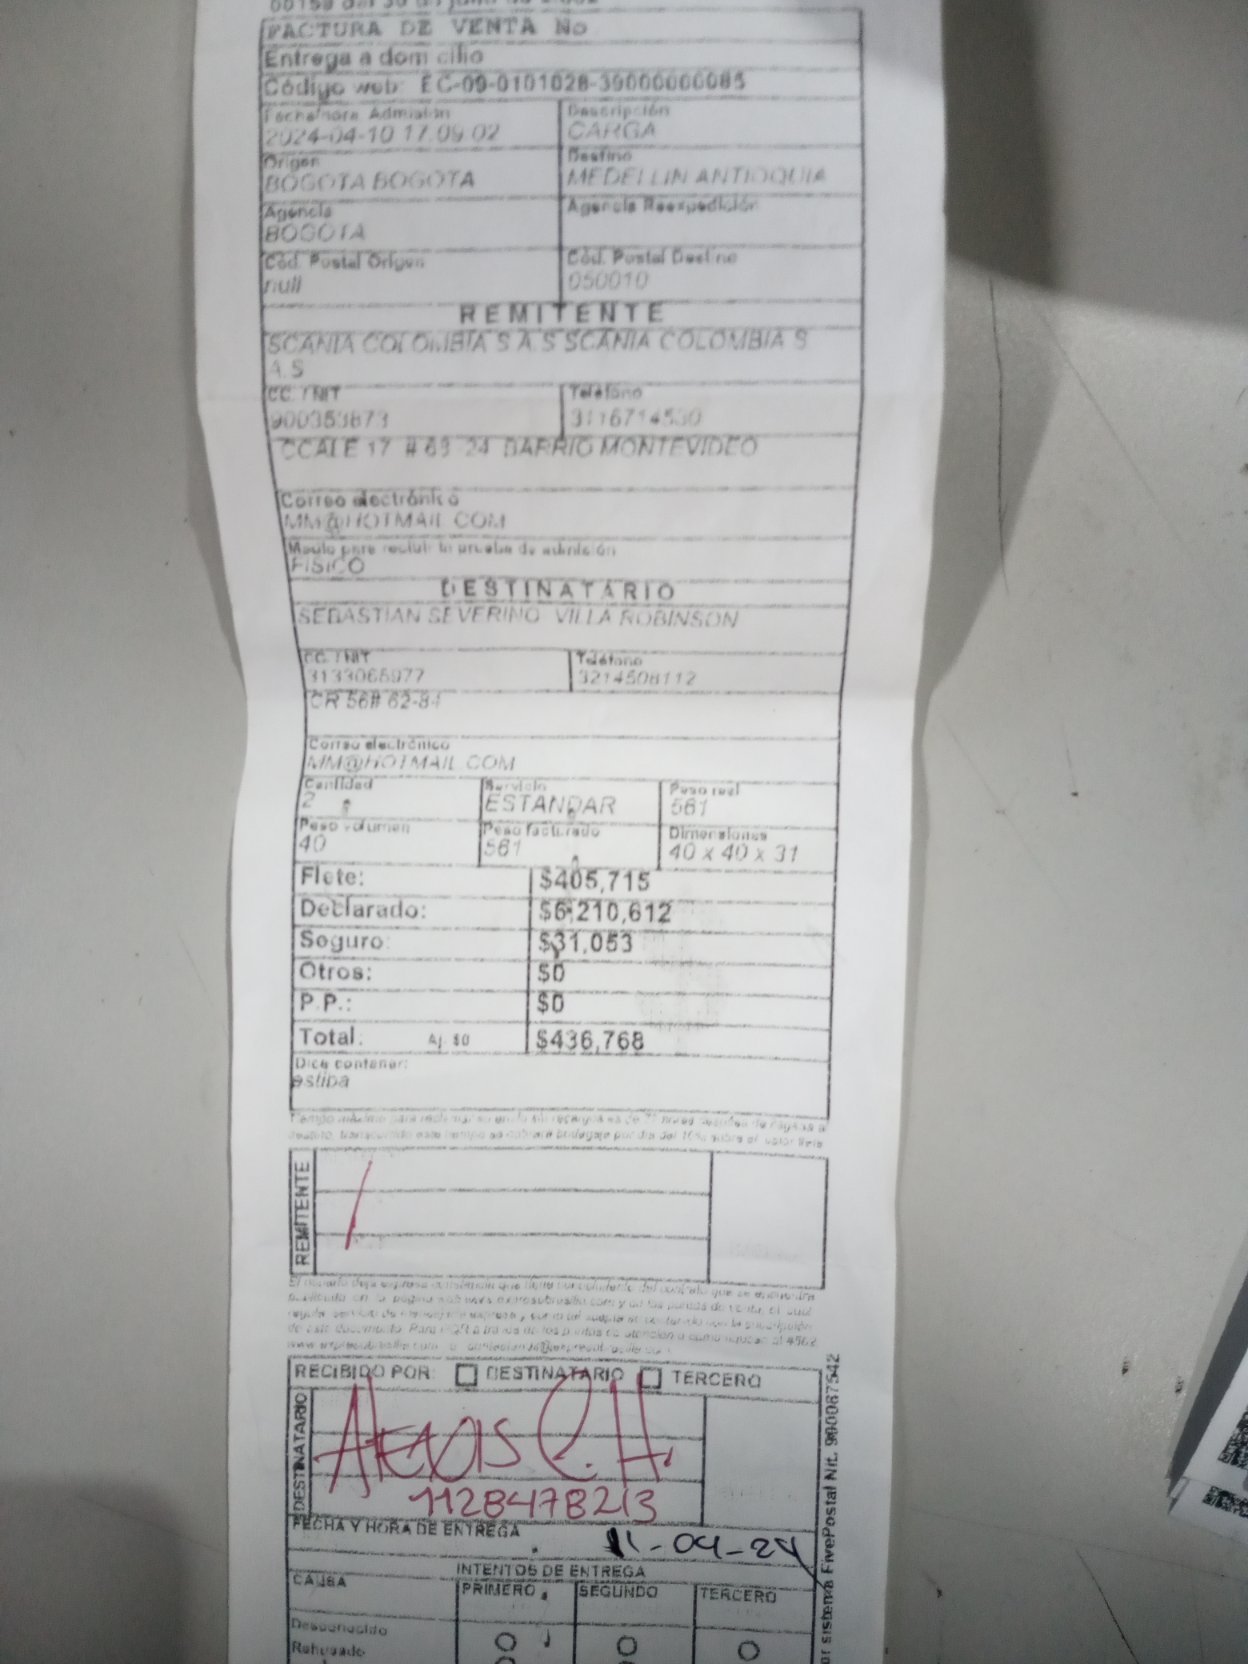 FACTURA DE VENTA No
Entrega a dom cilio
Código web: EC-09-0101028-39000000085
Fecha/hora Admisión Descripción
2024-04-10 17:09:02 CARGA
Origen Destino
BOGOTA BOGOTA MEDELLIN ANTIOQUIA
Agencia Agencia Reexpedición
BOGOTA
Cód. Postal Origen Cód. Postal Destino
null 050010
REMITENTE
SCANIA COLOMBIA S A S SCANIA COLOMBIA S
A.S
CC. / NIT Teléfono
900353873 3116714530
CCALE 17 # 69 24 BARRIO MONTEVIDEO
Correo electrónico
MM@HOTMAIL.COM
Medio para recibir la prueba de admisión
FISICO
DESTINATARIO
SEBASTIAN SEVERINO VILLA ROBINSON
CC. / NIT Teléfono
3133065977 3214508112
CR 56# 62-84
Correo electrónico
MM@HOTMAIL.COM
Cantidad Servicio Peso real
2 ESTANDAR 561
Peso volumen Peso facturado Dimensiones
40 561 40 x 40 x 31
Flete: $405,715
Declarado: $6,210,612
Seguro: $31,053
Otros: $0
P.P.: $0
Total: Aj. $0 $436,768
Dice contener:
estiba
REMITENTE
RECIBIDO POR: DESTINATARIO TERCERO
DESTINATARIO
1128478213
FECHA Y HORA DE ENTREGA 11-04-24
INTENTOS DE ENTREGA
CAUSA PRIMERO SEGUNDO TERCERO
Desconocido
Rehusado
sistema FivePostal Nit. 900087542